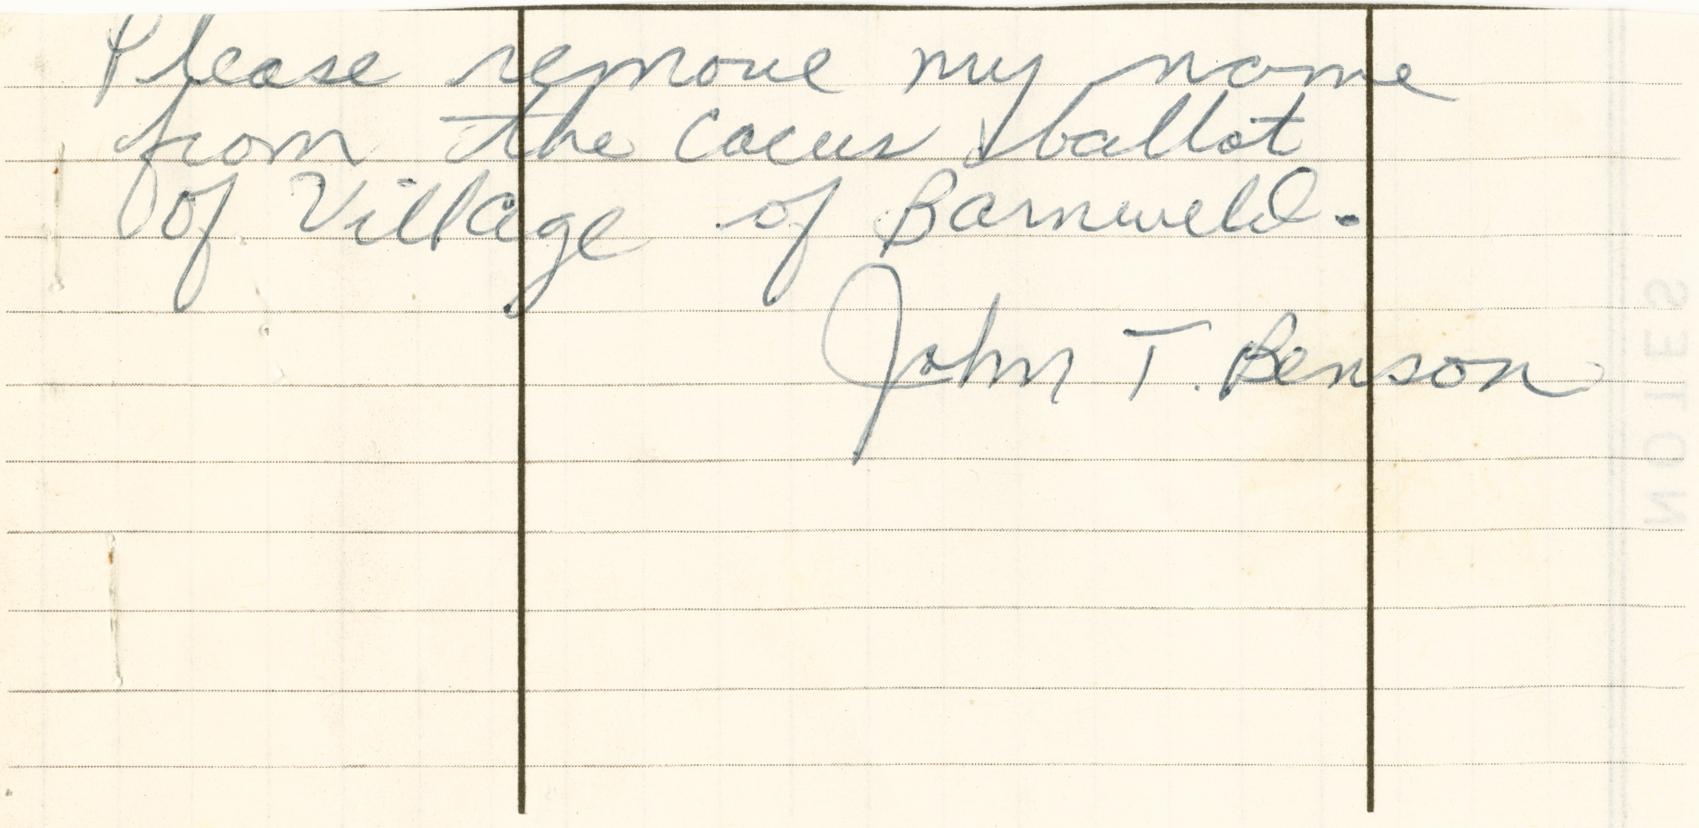 Please remove my name
from the Cocus ballot
of Village of Barneveld.
John T. Benson
NOTES